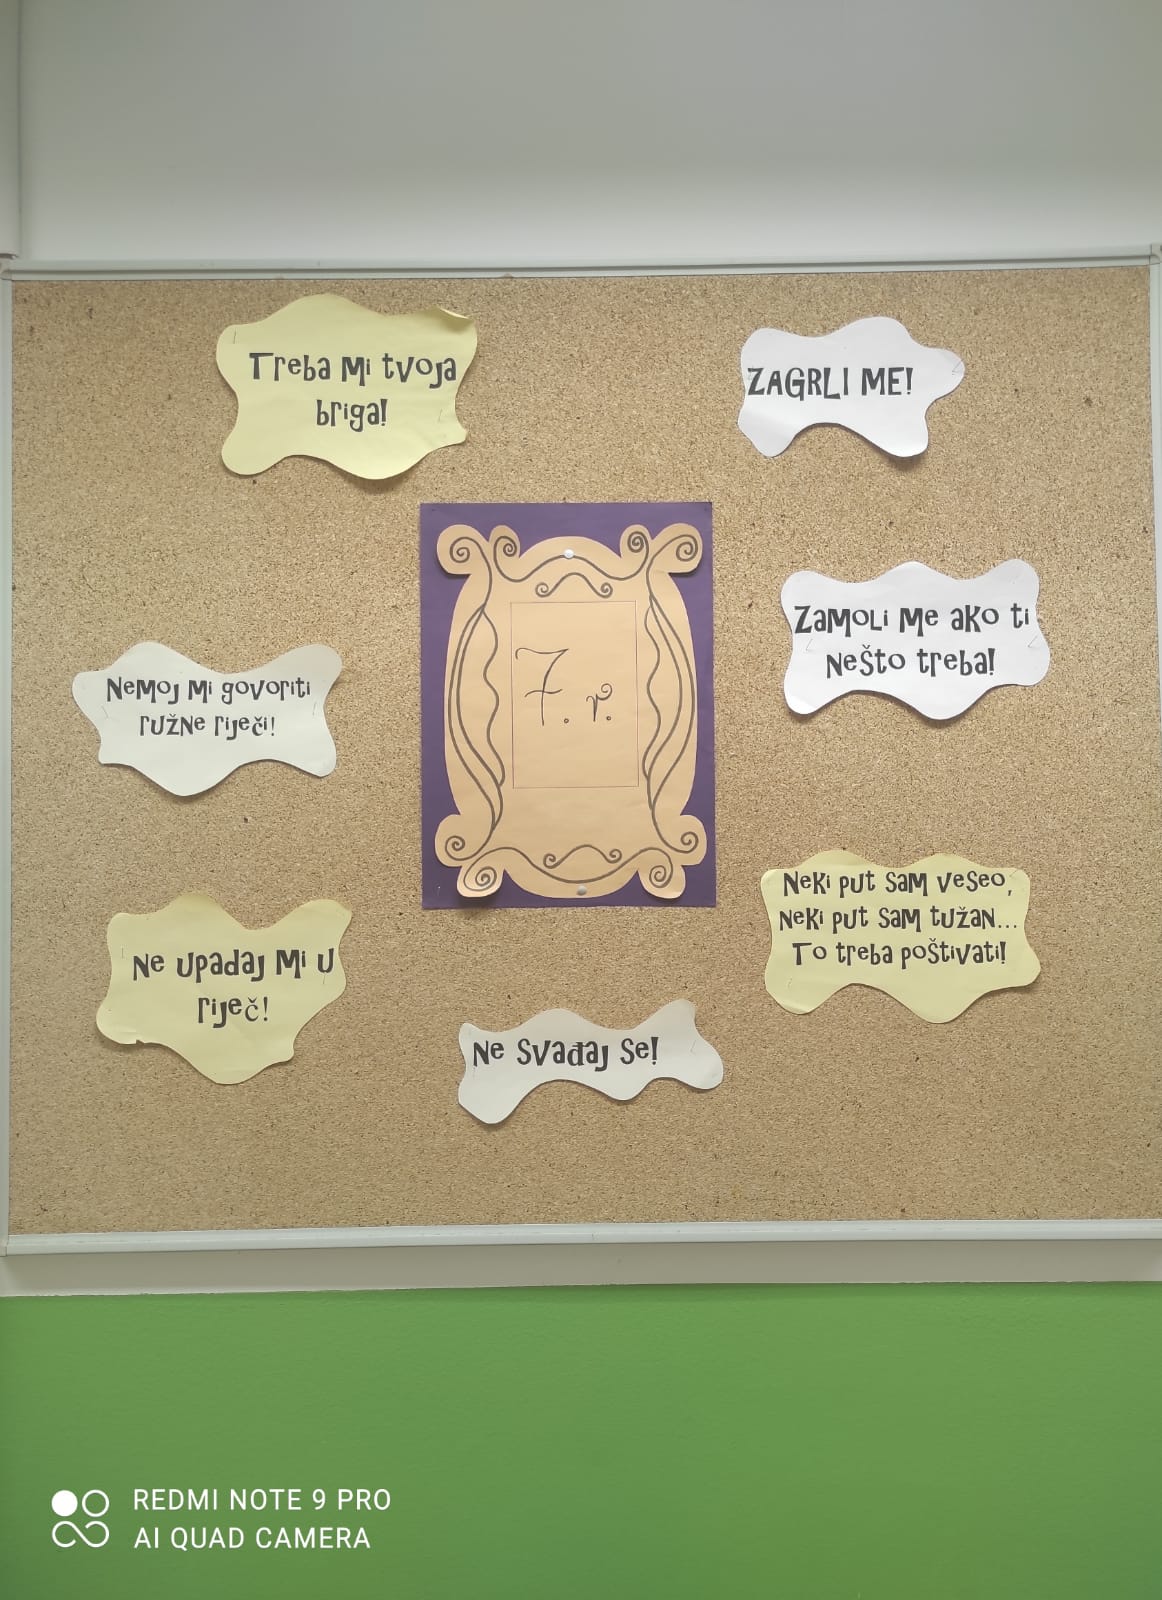 Treba mi tvoja
briga!
ZAGRLI ME!
Zamoli me ako ti
nešto treba!
7. r.
Nemoj mi govoriti
ružne riječi!
Neki put sam veseo,
neki put sam tužan...
To treba poštivati!
Ne upadaj mi u
riječ!
Ne svađaj se!
REDMI NOTE 9 PRO
AI QUAD CAMERA